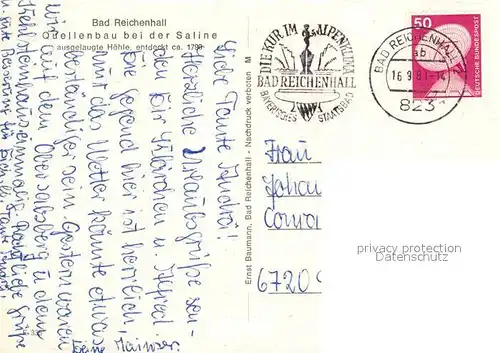 Bad Reichenhall
Quellenbau bei der Saline
ausgelaugte Höhle, entdeckt ca. 1790
Ernst Baumann, Bad Reichenhall - Nachdruck verboten M
DIE KUR IM ALPENKLIMA
BAD REICHENHALL
BAYERISCHES STAATSBAD
BAD REICHENHALL
ab
16.9.81-14
823
50
DEUTSCHE BUNDESPOST
Liebe Tante Andrea!
Herzliche Urlaubsgrüße sen-
den Dir Klärchen u. Alfred.
Die Gegend hier ist herrlich,
nur das Wetter könnte etwas
beständiger sein. Gestern waren
wir auf dem Obersalzberg u. dem
Kehlsteinhaus, einmalig. Herzliche Grüße
Mainzer.
Frau
Johan
Conra
6720
privacy protection
Datenschutz